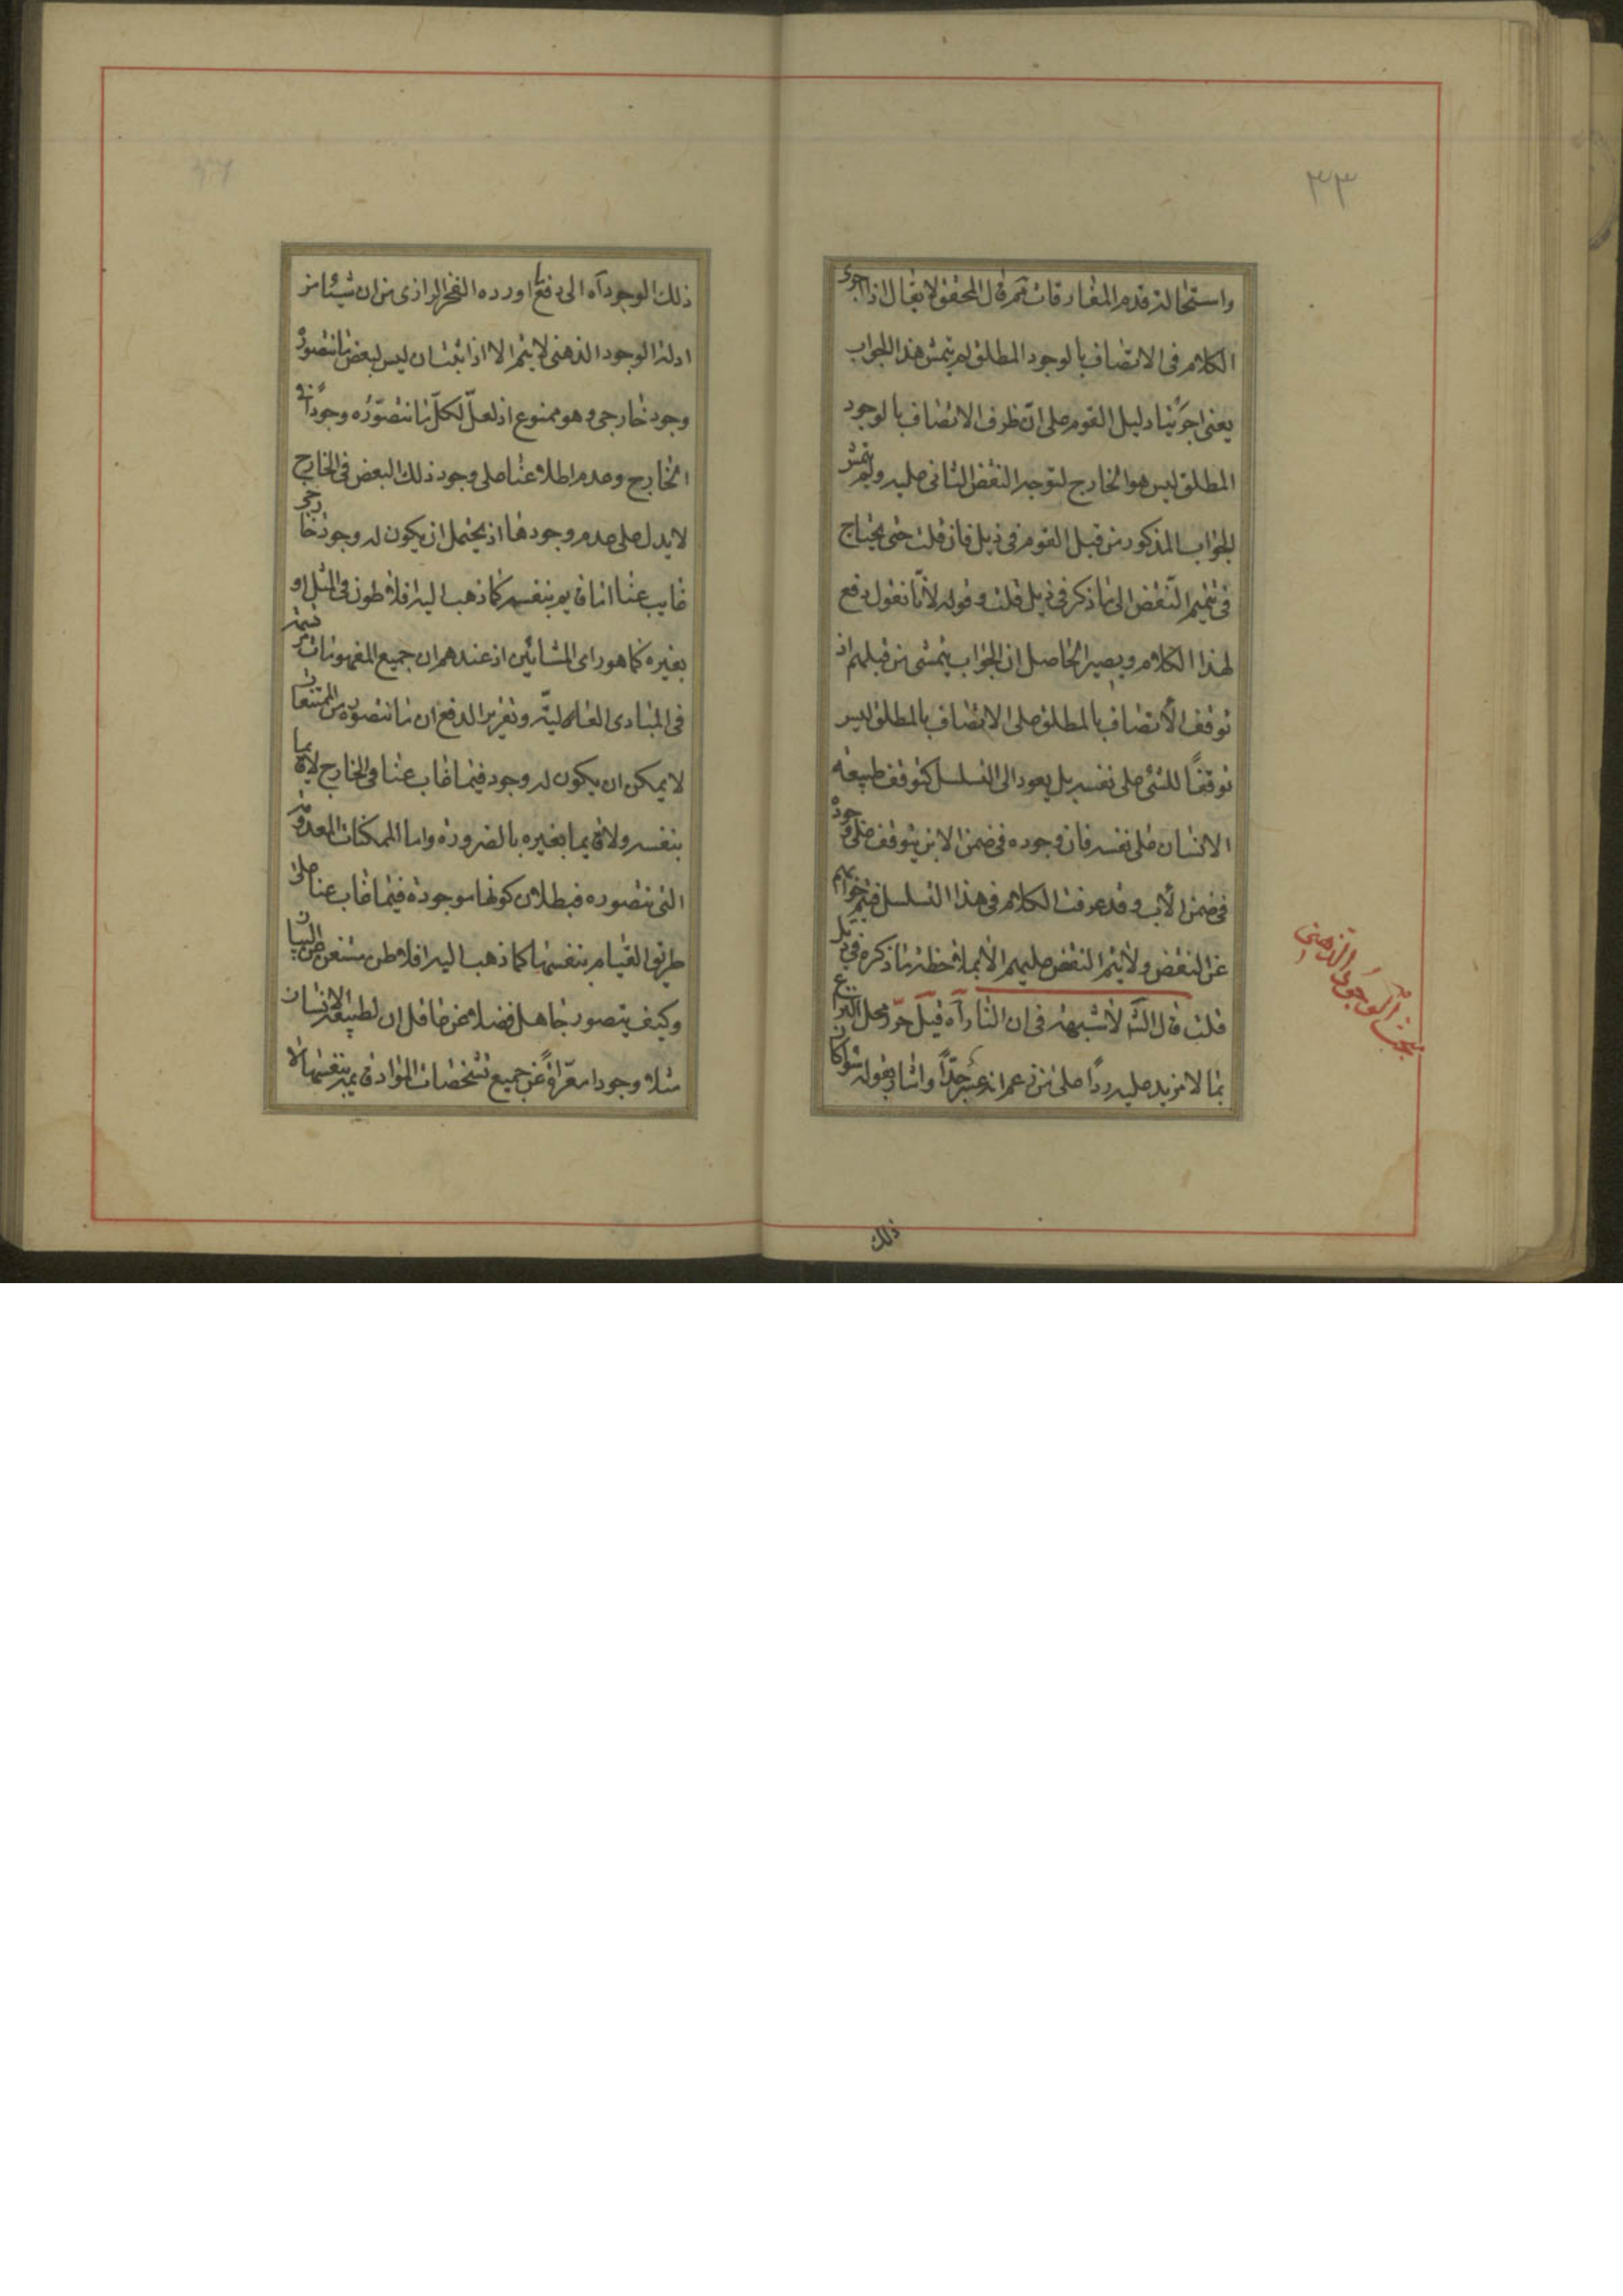 ٣٣
واستحالة قدم المفارقات ثم قال المحقق لا يقال اذا اجرى
الكلام فى الاتصاف بالوجود المطلق لم يتمش هذا الجواب
يعنى اجرينا دليل القوم على انّ ظرف الاتصاف بالوجود
المطلق ليس هو الخارج لتوجه النقض الثانى عليه ولم يتمش
الجواب المذكور من قبل القوم فى ذيل فان قلت حتى يحتاج
فى تتميم النّقض الى ما ذكر فى ذيل قلت و قوله لانّا نقول دفع
لهذا الكلام ويصير الحاصل ان الجواب يتمشى من قبلهم اذ
توقف الاتصاف بالمطلق على الاتصاف بالمطلق ليس
توقفًا للشئ على نفسه بل يعود الى التسلسل كتوقف طبيعة
الانسان على نفسه فان وجوده فى ضمن الابن يتوقف على وجوده
فى ضمن الأب وقد عرفت الكلام فى هذا التسلسل فتم جوابهم
عن النقض ولا يتم النقض عليهم الا بملاحظة ما ذكره فى ذيل
قلت قال الش لا شبهة فى ان النار آه قيل حرّر محل النزاع
بما لا مزيد عليه ردًا على من زعم انه عسر جدًّا واشار بقوله سواء كان
مبحث الوجود الذهنى
ذلك
ذلك الوجود آه الى دفع ما اورده الفخر الرازى من ان شيئا من
ادلة الوجود الذهنى لا يتم الا اذا ثبت ان ليس لبعض ما نتصوره
وجود خارجى وهو ممنوع اذ لعلّ لكلّ ما نتصوّره وجودًا فى
الخارج وعدم اطلاعنا على وجود ذلك البعض فى الخارج
لا يدل على عدم وجودها اذ يحتمل ان يكون له وجود خارجى
غايب عنا اما قايم بنفسه كما ذهب اليه افلاطون فى المثل او
بغيره كما هو راى المشائين اذ عندهم ان جميع المفهومات مرتسمة
فى المبادى العالية وتقرير الدفع ان ما نتصوره من الممتنعات
لا يمكن ان يكون له وجود فيما غاب عنا فى الخارج لا قايما
بنفسه ولا قايما بغيره بالضرورة واما الممكنات المعدومة
التى نتصوره فبطلان كونها موجودة فيما غاب عنا على
طريق القيام بنفسها كما ذهب اليه افلاطن مستغن عن البيان
وكيف يتصور جاهل فضلا عن عاقل ان لطبيعة الانسان
مثلا وجودا معرّاة عن جميع تشخصات المواد قايمة بنفسها لا